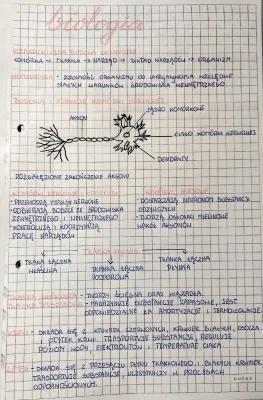 biologia
HIERARCHICZNA BUDOWA ORGANIZMU
KOMÓRKA → TKANKA → NARZĄD → UKŁAD NARZĄDÓW → ORGANIZM
HOMEOSTAZA - ZDOLNOŚĆ ORGANIZMU DO UTRZYMYWANIA WZGLĘDNIE
STAŁYCH WARUNKÓW ŚRODOWISKA WEWNĘTRZNEGO
BUDOWA I FUNKCJE KOMÓRKI NERWOWEJ
JĄDRO KOMÓRKOWE
AKSON
CIAŁO KOMÓRKI NERWOWEJ
DENDRYTY
ROZGAŁĘZIONE ZAKOŃCZENIE AKSONU
KOMÓRKI NERWOWE
• PRZEWODZĄ IMPULSY NERWOWE
• ODBIERAJĄ BODŹCE ZE ŚRODOWISKA
ZEWNĘTRZNEGO I WEWNĘTRZNEGO
• KONTROLUJĄ I KOORDYNUJĄ
PRACĘ NARZĄDÓW
• DOSTARCZAJĄ NEURONOM SUBSTANCJI
ODŻYWCZYCH
• TWORZĄ OSŁONKI MIELINOWE
WOKÓŁ AKSONÓW
TKANKA ŁĄCZNA
WŁAŚCIWA
TKANKA ŁĄCZNA
PODPOROWA
TKANKA ŁĄCZNA
PŁYNNA
- TWORZY ŚCIĘGNA ORAZ WIĄZADŁA
- MAGAZYNUJE SUBSTANCJE ZAPASOWE, JEST
ODPOWIEDZIALNE ZA AMORTYZACJE I TERMOIZOLACJE
KREW - SKŁADA SIĘ Z KRWINEK CZERWONYCH, KRWINEK BIAŁYCH, OSOCZA
I PŁYTEK KRWI. TRANSPORTUJE SUBSTANCJE, REGULUJE
POZIOM WODY, ELEKTROLITÓW I TEMPERATURĘ CIAŁA
LIMFA - SKŁADA SIĘ Z PRZESĄCZU PŁYNU TKANKOWEGO I BIAŁYCH KRWINEK
TRANSPORTUJE SUBSTANCJE, UCZESTNICZY W PROCESACH
ODPORNOŚCIOWYCH.